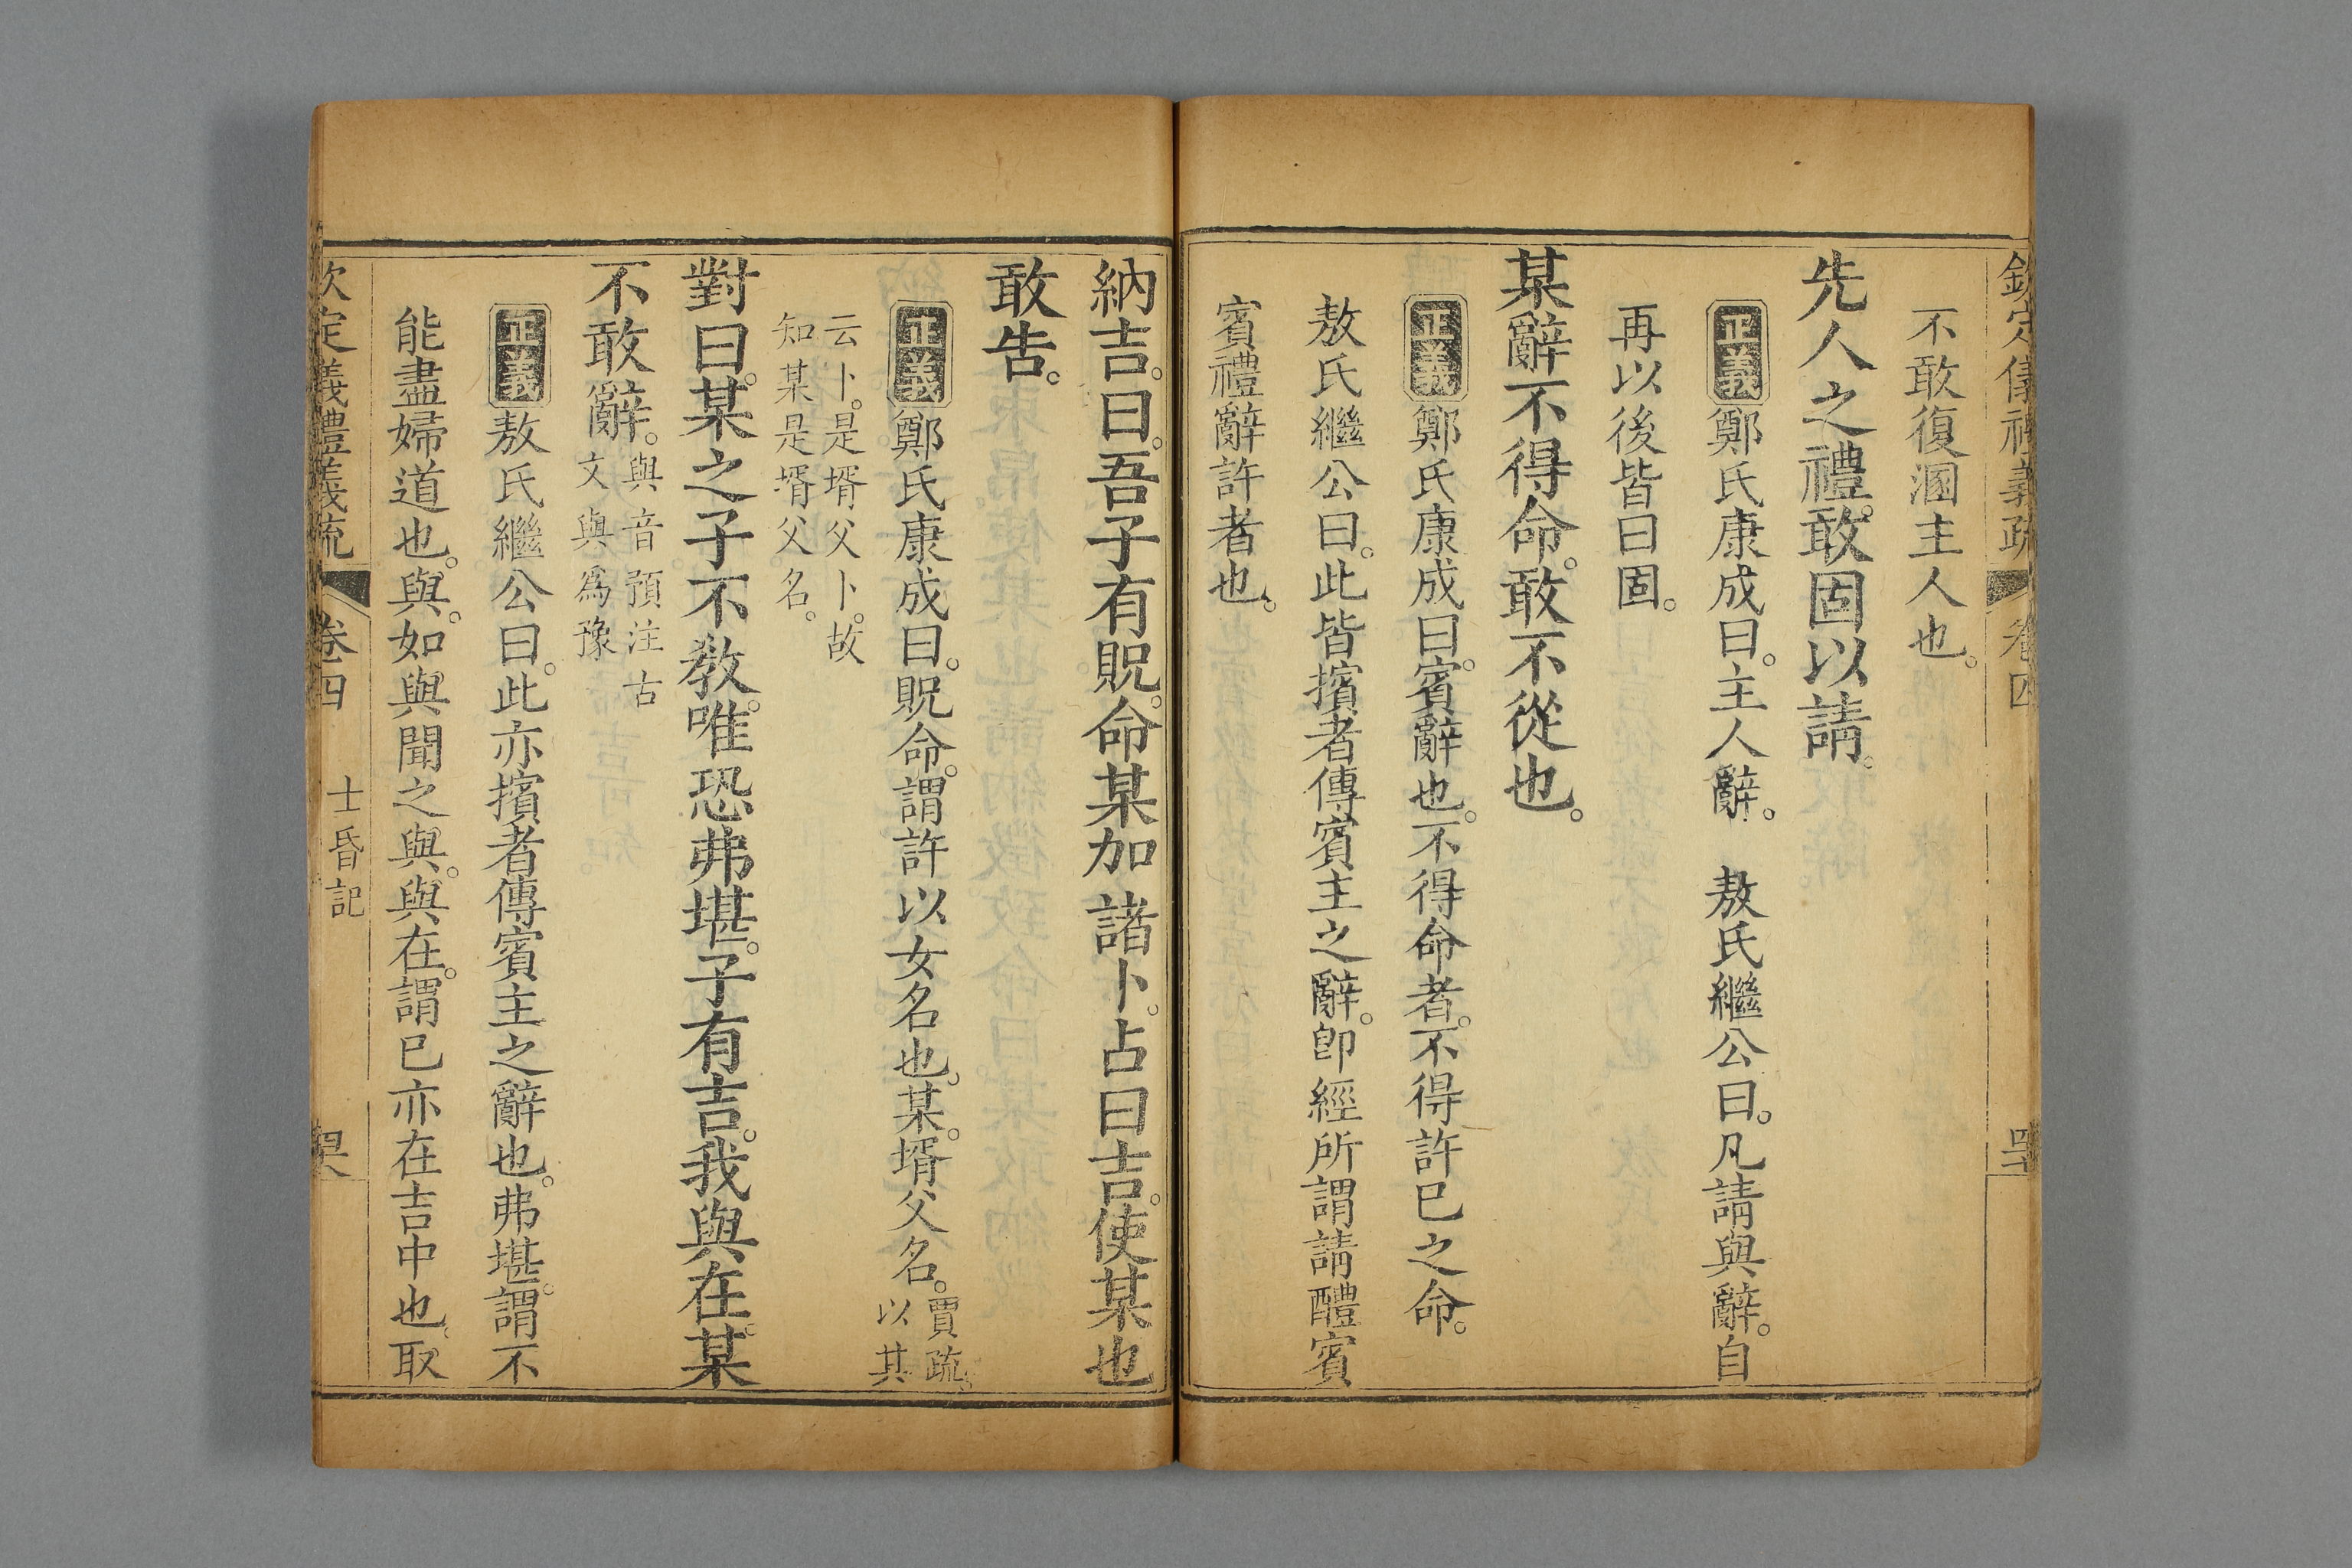 欽定儀禮義疏 卷四 四十七
不敢復溷主人也。
先人之禮。敢固以請。
正義 鄭氏康成曰。主人辭。 敖氏繼公曰。凡請與辭。自
再以後皆曰固。
某辭不得命。敢不從也。
正義 鄭氏康成曰。賓辭也。不得命者。不得許已之命。
敖氏繼公曰。此皆擯者傳賓主之辭。卽經所謂請醴賓
賓禮辭許者也。
納吉。曰。吾子有貺。命某加諸卜。占曰吉。使某也
敢告。
正義 鄭氏康成曰。貺命。謂許以女名也。某。壻父名。賈疏。以其
云卜。是壻父卜。故知某是壻父名。
對曰。某之子不敎。唯恐弗堪。子有吉。我與在。某
不敢辭。與音預注古文與爲豫
正義 敖氏繼公曰。此亦擯者傳賓主之辭也。弗堪。謂不
能盡婦道也。與。如與聞之與。與在。謂已亦在吉中也。取
欽定義禮義疏 卷四 士昏記 四十八